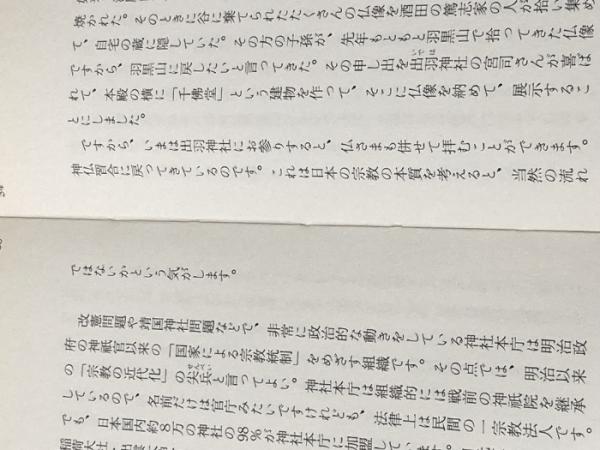 焼かれた。そのときに谷に棄てられたたくさんの仏像を酒田の篤志家の人が拾い集め
て、自宅の蔵に隠していた。その方の子孫が、先年もともと羽黒山で拾ってきた仏像
ですから、羽黒山に戻したいと言ってきた。その申し出を出羽神社の宮司さんが喜ば
れて、本殿の横に「千佛堂」という建物を作って、そこに仏像を納めて、展示するこ
とにしました。
ですから、いまは出羽神社にお参りすると、仏さまも併せて拝むことができます。
神仏習合に戻ってきているのです。これは日本の宗教の本質を考えると、当然の流れ
ではないかという気がします。
改憲問題や靖国神社問題などで、非常に政治的な動きをしている神社本庁は明治政
府の神祇官以来の「国家による宗教統制」をめざす組織です。その点では、明治以来
の「宗教の近代化」の尖兵と言ってよい。神社本庁は組織的には戦前の神祇院を継承
しているので、名前だけは官庁みたいですけれども、法律上は民間の一宗教法人です。
でも、日本国内約8万の神社の98%が神社本庁に加盟しています。